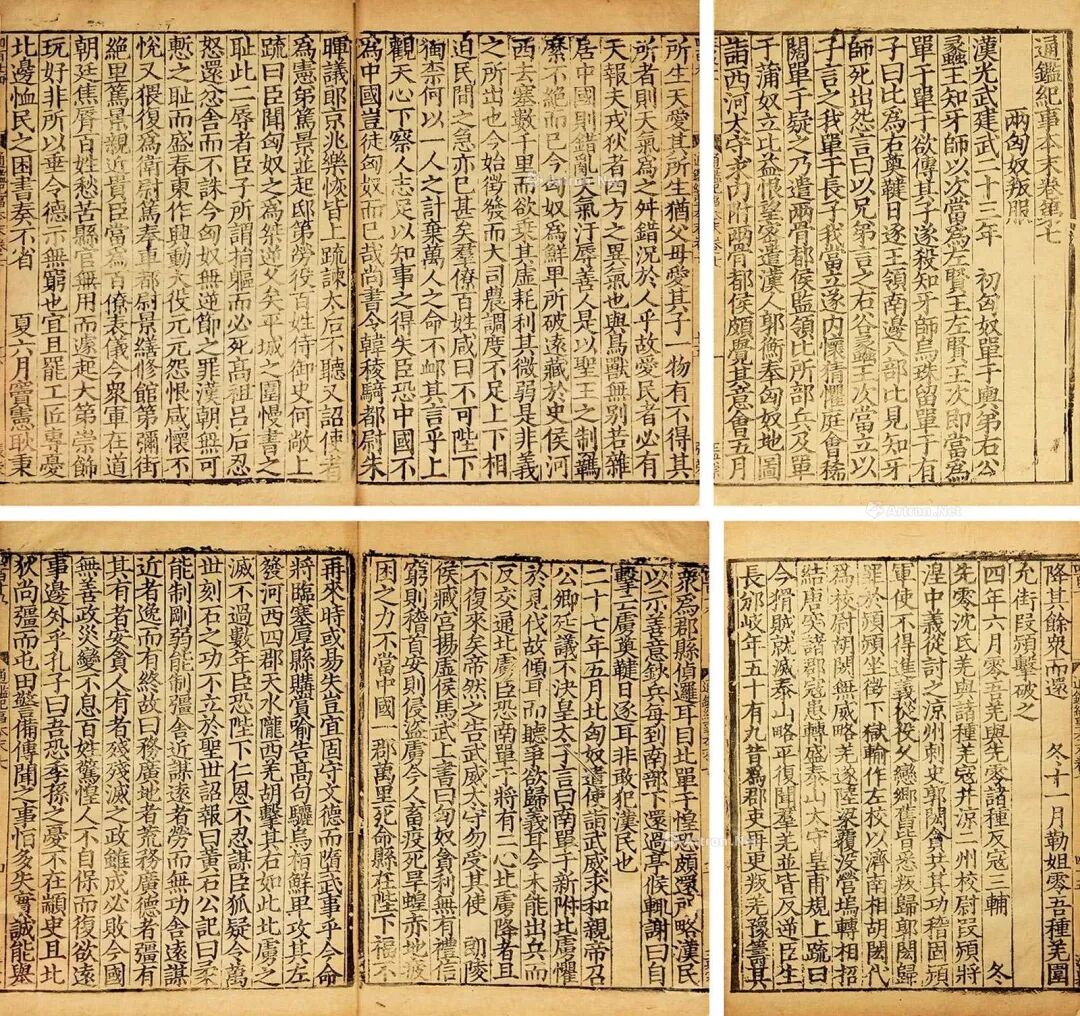 通鑑紀事本末卷第七
兩匈奴叛服
漢光武建武二十三年　初匈奴單于輿弟右谷
蠡王知牙師以次當為左賢王左賢王次即當為
單于單于欲傳其子遂殺知牙師烏珠留單于有
子曰比為右薁鞬日逐王領南邊八部比見知牙
師死出怨言曰以兄弟言之右谷蠡王次當立以
子言之我單于長子我當立遂內懷猜懼庭會稀
闊單于疑之乃遣兩骨都侯監領比所部兵及單
于蒲奴立比益恨望密遣漢人郭衡奉匈奴地圖
詣西河太守求內附兩骨都侯頗覺其意會五月
所生天愛其所生猶父母愛其子一物有不得其
所者則天氣為之舛錯況於人乎故愛民者必有
天報夫戎狄者四方之異氣也與鳥獸無別若雜
居中國則錯亂天氣汙辱善人是以聖王之制羈
縻不絕而已今匈奴為鮮卑所破遠藏於史侯河
西去塞數千里而欲乘其虛耗利其微弱是非義
之所出也今始徵發而大司農調度不足上下相
迫民間之急亦已甚矣羣僚百姓咸曰不可陛下
獨柰何以一人之計棄萬人之命不卹其言乎上
觀天心下察人志足以知事之得失臣恐中國不
為中國豈徒匈奴而已哉尚書令韓稜騎都尉朱
暉議郎京兆樂恢皆上疏諫太后不聽又詔使者
為憲弟篤景並起邸第勞役百姓侍御史何敞上
疏曰臣聞匈奴之為桀逆久矣平城之圍慢書之
恥此二辱者臣子所謂捐軀而必死高祖呂后忍
怒還忿舍而不誅今匈奴無逆節之罪漢朝無可
慙之恥而盛春東作興動大役元元怨恨咸懷不
悅又猥復為衞尉篤奉車都尉景繕修館第彌街
絕里篤景親近貴臣當為百僚表儀今衆軍在道
朝廷焦脣百姓愁苦縣官無用而遽起大第崇飾
玩好非所以垂令德示無窮也宜且罷工匠專憂
北邊恤民之困書奏不省　夏六月竇憲耿秉
降其餘衆而還　冬十一月勒姐零吾種羌圍
允街段熲擊破之
四年六月零吾羌與先零諸種反寇三輔　冬
先零沈氐羌與諸種羌寇并涼二州校尉段熲將
湟中義從討之涼州刺史郭閎貪共其功稽固熲
軍使不得進義從役久戀鄉舊皆悉叛歸郭閎歸
罪於熲熲坐徵下獄輸作左校以濟南相胡閎代
為校尉胡閎無威略羌遂陸梁覆沒營塢轉相招
結唐突諸郡寇患轉盛泰山太守皇甫規上疏曰
今猾賊就滅泰山略平復聞羣羌並皆反逆臣生
長邠岐年五十有九昔為郡吏再更叛羌豫籌其
衆為郡縣偵邏耳目北單于惶恐頗還所略漢民
以示善意鈔兵每到南部下還過亭候輒謝曰自
擊亡虜薁鞬日逐耳非敢犯漢民也
二十七年五月北匈奴遣使詣武威求和親帝召
公卿廷議不決皇太子言曰南單于新附北虜懼
於見伐故傾耳而聽爭欲歸義耳今未能出兵而
反交通北虜臣恐南單于將有二心北虜降者且
不復來矣帝然之告武威太守勿受其使　朗陵
侯臧宮揚虛侯馬武上書曰匈奴貪利無有禮信
窮則稽首安則侵盜虜今人畜疫死旱蝗赤地疲
困之力不當中國一郡萬里死命縣在陛下福不
再來時或易失豈宜固守文德而墮武事乎今命
將臨塞厚縣購賞喻告高句驪烏桓鮮卑攻其左
發河西四郡天水隴西羌胡擊其右如此北虜之
滅不過數年臣恐陛下仁恩不忍謀臣狐疑令萬
世刻石之功不立於聖世詔報曰黃石公記曰柔
能制剛弱能制彊舍近謀遠者勞而無功舍遠謀
近者逸而有終故曰務廣地者荒務廣德者彊有
其有者安貪人有者殘殘滅之政雖成必敗今國
無善政災變不息百姓驚惶人不自保而復欲遠
事邊外乎孔子曰吾恐季孫之憂不在顓臾且北
狄尚彊而屯田警備傳聞之事恒多失實誠能舉
Artron.Net